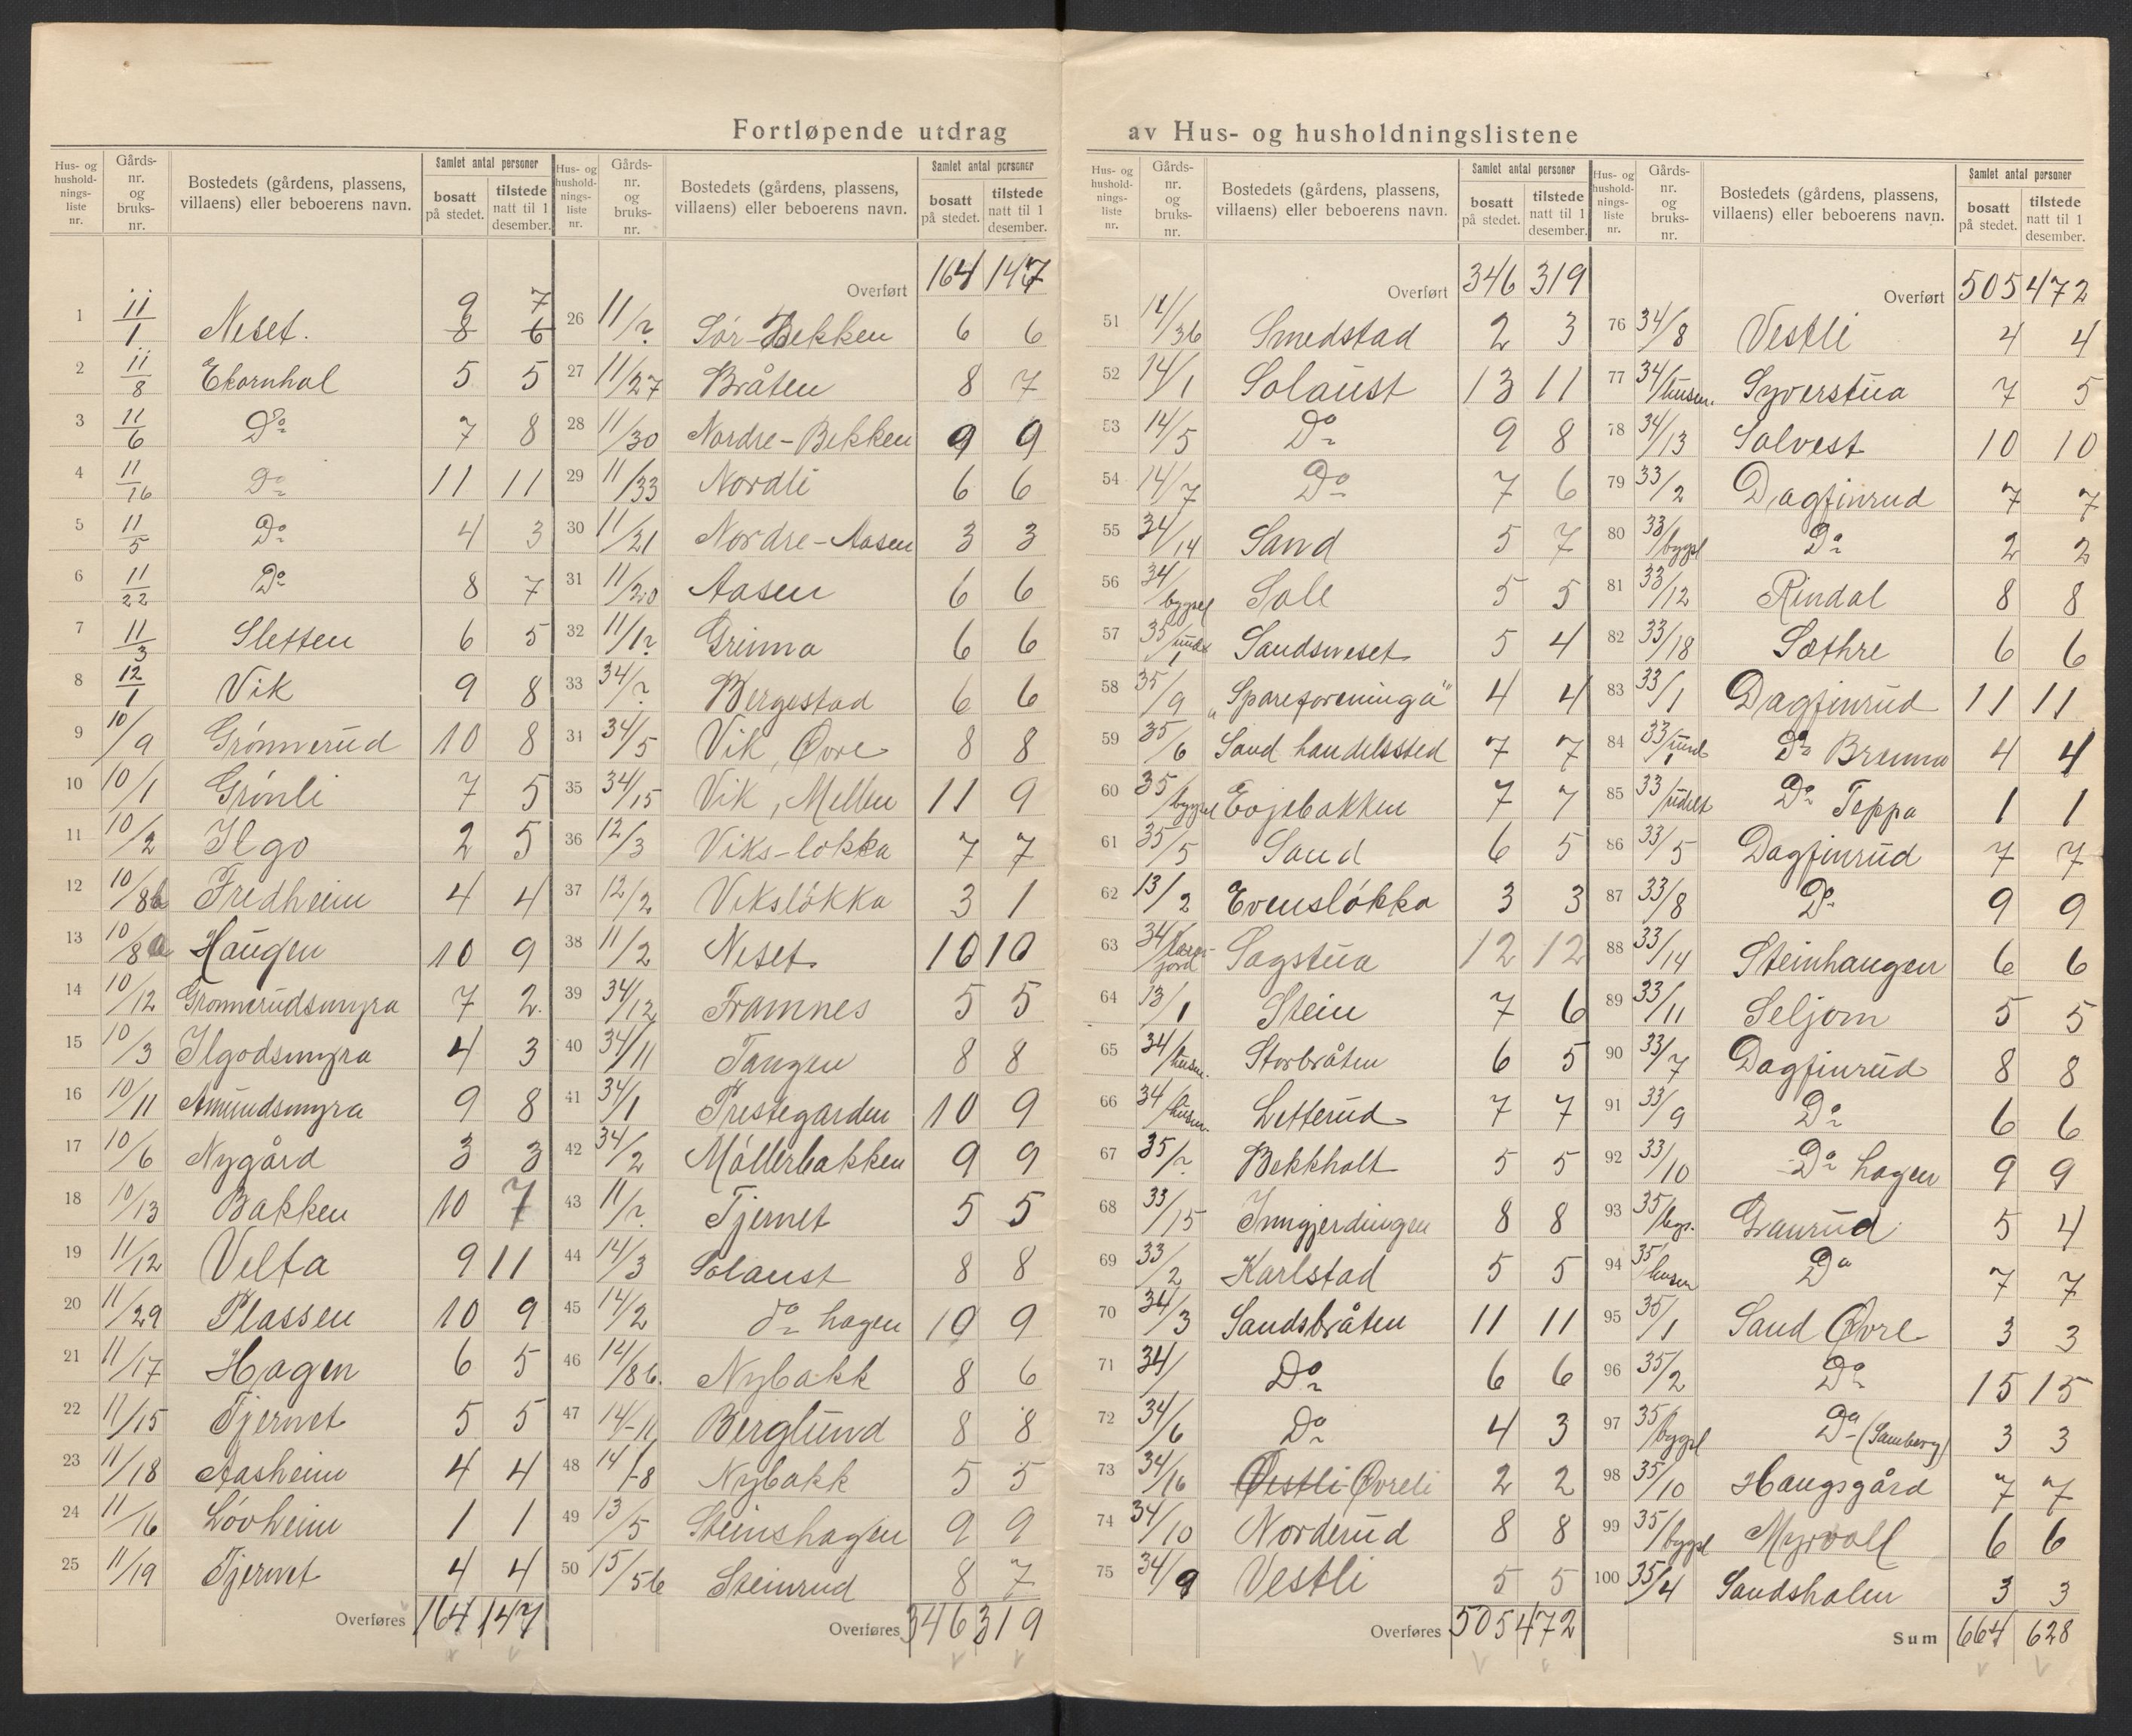 Fortløpende utdrag av Hus- og husholdningslistene
Hus- og hushold-nings-liste nr. | Gårds-nr. og bruks-nr. | Bostedets (gårdens, plassens, villaens) eller beboerens navn. | Samlet antal personer bosatt på stedet. | tilstede natt til 1 desember.
1 11/1 Neset. 9 7 8 6
2 11/8 Ekornhol 5 5
3 11/6 Do 7 8
4 11/16 Do 11 11
5 11/5 Do 4 3
6 11/22 Do 8 7
7 11/3 Sletten 6 5
8 12/1 Vik 9 8
9 10/9 Grönnerud 10 8
10 10/1 Grönli 7 5
11 10/2 Ilgo 2 5
12 10/8b Fredheim 4 4
13 10/8a Haugen 10 9
14 10/12 Grönnerudsmyra 7 2
15 10/3 Ilgodsmyra 4 3
16 10/11 Amundsmyra 9 8
17 10/6 Nygård 3 3
18 10/13 Bakken 10 7
19 11/12 Velta 9 11
20 11/29 Plassen 10 9
21 11/17 Hagen 6 5
22 11/15 Tjernet 5 5
23 11/18 Aasheim 4 4
24 11/16 Lövheim 1 1
25 11/19 Tjernet 4 4
Overføres 164 147
Hus- og hushold-nings-liste nr. | Gårds-nr. og bruks-nr. | Bostedets (gårdens, plassens, villaens) eller beboerens navn. | Samlet antal personer bosatt på stedet. | tilstede natt til 1 desember.
Overført 164 147
26 11/? Sör-Bekken 6 6
27 11/27 Bråten 8 7
28 11/30 Nordre-Bekken 9 9
29 11/33 Nordli 6 6
30 11/21 Nordre-Aasen 3 3
31 11/20 Aasen 6 6
32 11/1? Grinna 6 6
33 34/? Bergestad 6 6
31 34/5 Vik, Övre 8 8
35 34/15 Vik, Mellen 11 9
36 12/3 Viks-lökka 7 7
37 12/2 Vikslökka 3 1
38 11/2 Neset 10 10
39 34/12 Framnes 5 5
40 34/11 Tangen 8 8
41 34/1 Prestegarden 10 9
42 34/2 Möllerbakken 9 9
43 11/? Tjernet 5 5
44 14/3 Solaust 8 8
45 14/2 do hagen 10 9
46 14/8b. Nybakk 8 6
47 14-11 Berglund 8 8
48 14/-8 Nybakk 5 5
49 13/5 Steinshagen 9 9
50 15/56 Steinrud 8 7
Overføres 346 319
Hus- og hushold-nings-liste nr. | Gårds-nr. og bruks-nr. | Bostedets (gårdens, plassens, villaens) eller beboerens navn. | Samlet antal personer bosatt på stedet. | tilstede natt til 1 desember.
Overført 346 319
51 14/36 Smedstad 2 3
52 14/1 Solaust 13 11
53 14/5 Do 9 8
54 14/7 Do 7 6
55 34/14 Sand 5 7
56 34/bygsel Sole 5 5
57 35/1 Sandsneset 5 4
58 35/9 "Spareforeninga" 4 4
59 35/6 Sand handelssted 7 7
60 35/bygsel Evjebakken 7 7
61 35/5 Sand 6 5
62 13/2 Evenslökka 3 3
63 34/ Sagstua 12 12
64 13/1 Stein 7 6
65 34/husm. Storbråten 6 5
66 34/husm. Letterud 7 7
67 35/? Bekkholt 5 5
68 33/15 Inngjerdingen 8 8
69 33/2 Karlstad 5 5
70 34/3 Sandsbråten 11 11
71 34/ Do 6 6
72 34/6 Do 4 3
73 34/16 Østli Övreli 2 2
74 34/10 Norderud 8 8
75 34/9 Vestli 5 5
Overføres 505 472
Hus- og hushold-nings-liste nr. | Gårds-nr. og bruks-nr. | Bostedets (gårdens, plassens, villaens) eller beboerens navn. | Samlet antal personer bosatt på stedet. | tilstede natt til 1 desember.
Overført 505 472
76 34/8 Vestli 4 4
77 34/husm. Syverstua 7 5
78 34/13 Solvest 10 10
79 33/2 Dagfinrud 7 7
80 33/bygsl Do 2 2
81 33/12 Rindal 8 8
82 33/18 Sæthre 6 6
83 33/1 Dagfinrud 11 11
84 33/ Do Brenna 4 4
85 33/udelt Do Teppa 1 1
86 33/5 Dagfinrud 7 7
87 33/8 Do 9 9
88 33/14 Steinhaugen 6 6
89 33/11 Seljom 5 5
90 33/7 Dagfinrud 8 8
91 33/9 Do 6 6
92 33/10 Do hagen 9 9
93 35/bygs. Granrud 5 4
94 35/husm Do 7 7
95 35/1 Sand Övre 3 3
96 35/2 Do 15 15
97 35/bygsl Do (Sandberg) 3 3
98 35/10 Haugsgård 7 7
99 35/bygsl Myrvoll 6 6
100 35/4 Sandsholen 3 3
Sum 664 628